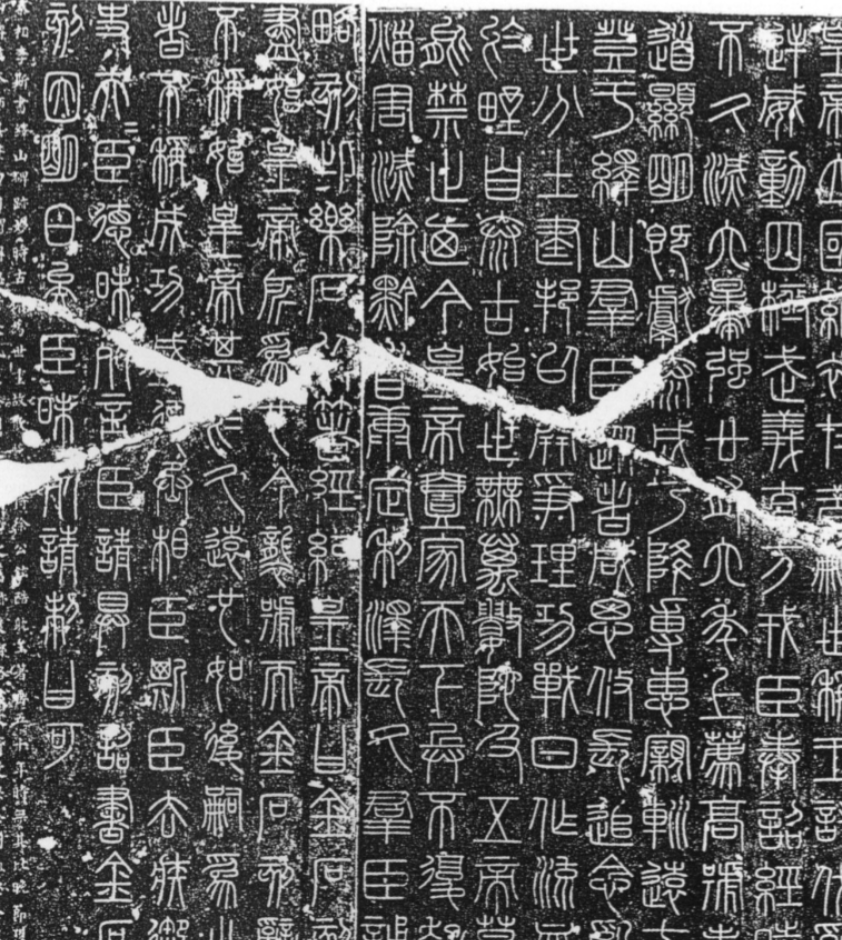 皇帝立國維初在昔嗣世稱王討伐亂
逆威動四極武義直方戎臣奉詔經時
不久滅六暴強廿有六年上薦高號孝
道顯明既獻泰成乃降專惠親巡遠方
登于繹山群臣從者咸思攸長追念亂
世分土建邦以開爭理功戰日作流血
於野自泰古始世無萬數陀及五帝莫
能禁止乃今皇帝壹家天下兵不復起
災害滅除黔首康定利澤長久群臣誦
略刻此樂石以著經紀皇帝曰金石刻
盡始皇帝所為也今襲號而金石刻辭
不稱始皇帝其於久遠也如後嗣為之
者不稱成功盛德丞相臣斯臣去疾御
史夫=臣德昧死言臣請具刻詔書金石
刻因明白矣臣昧死請制曰可